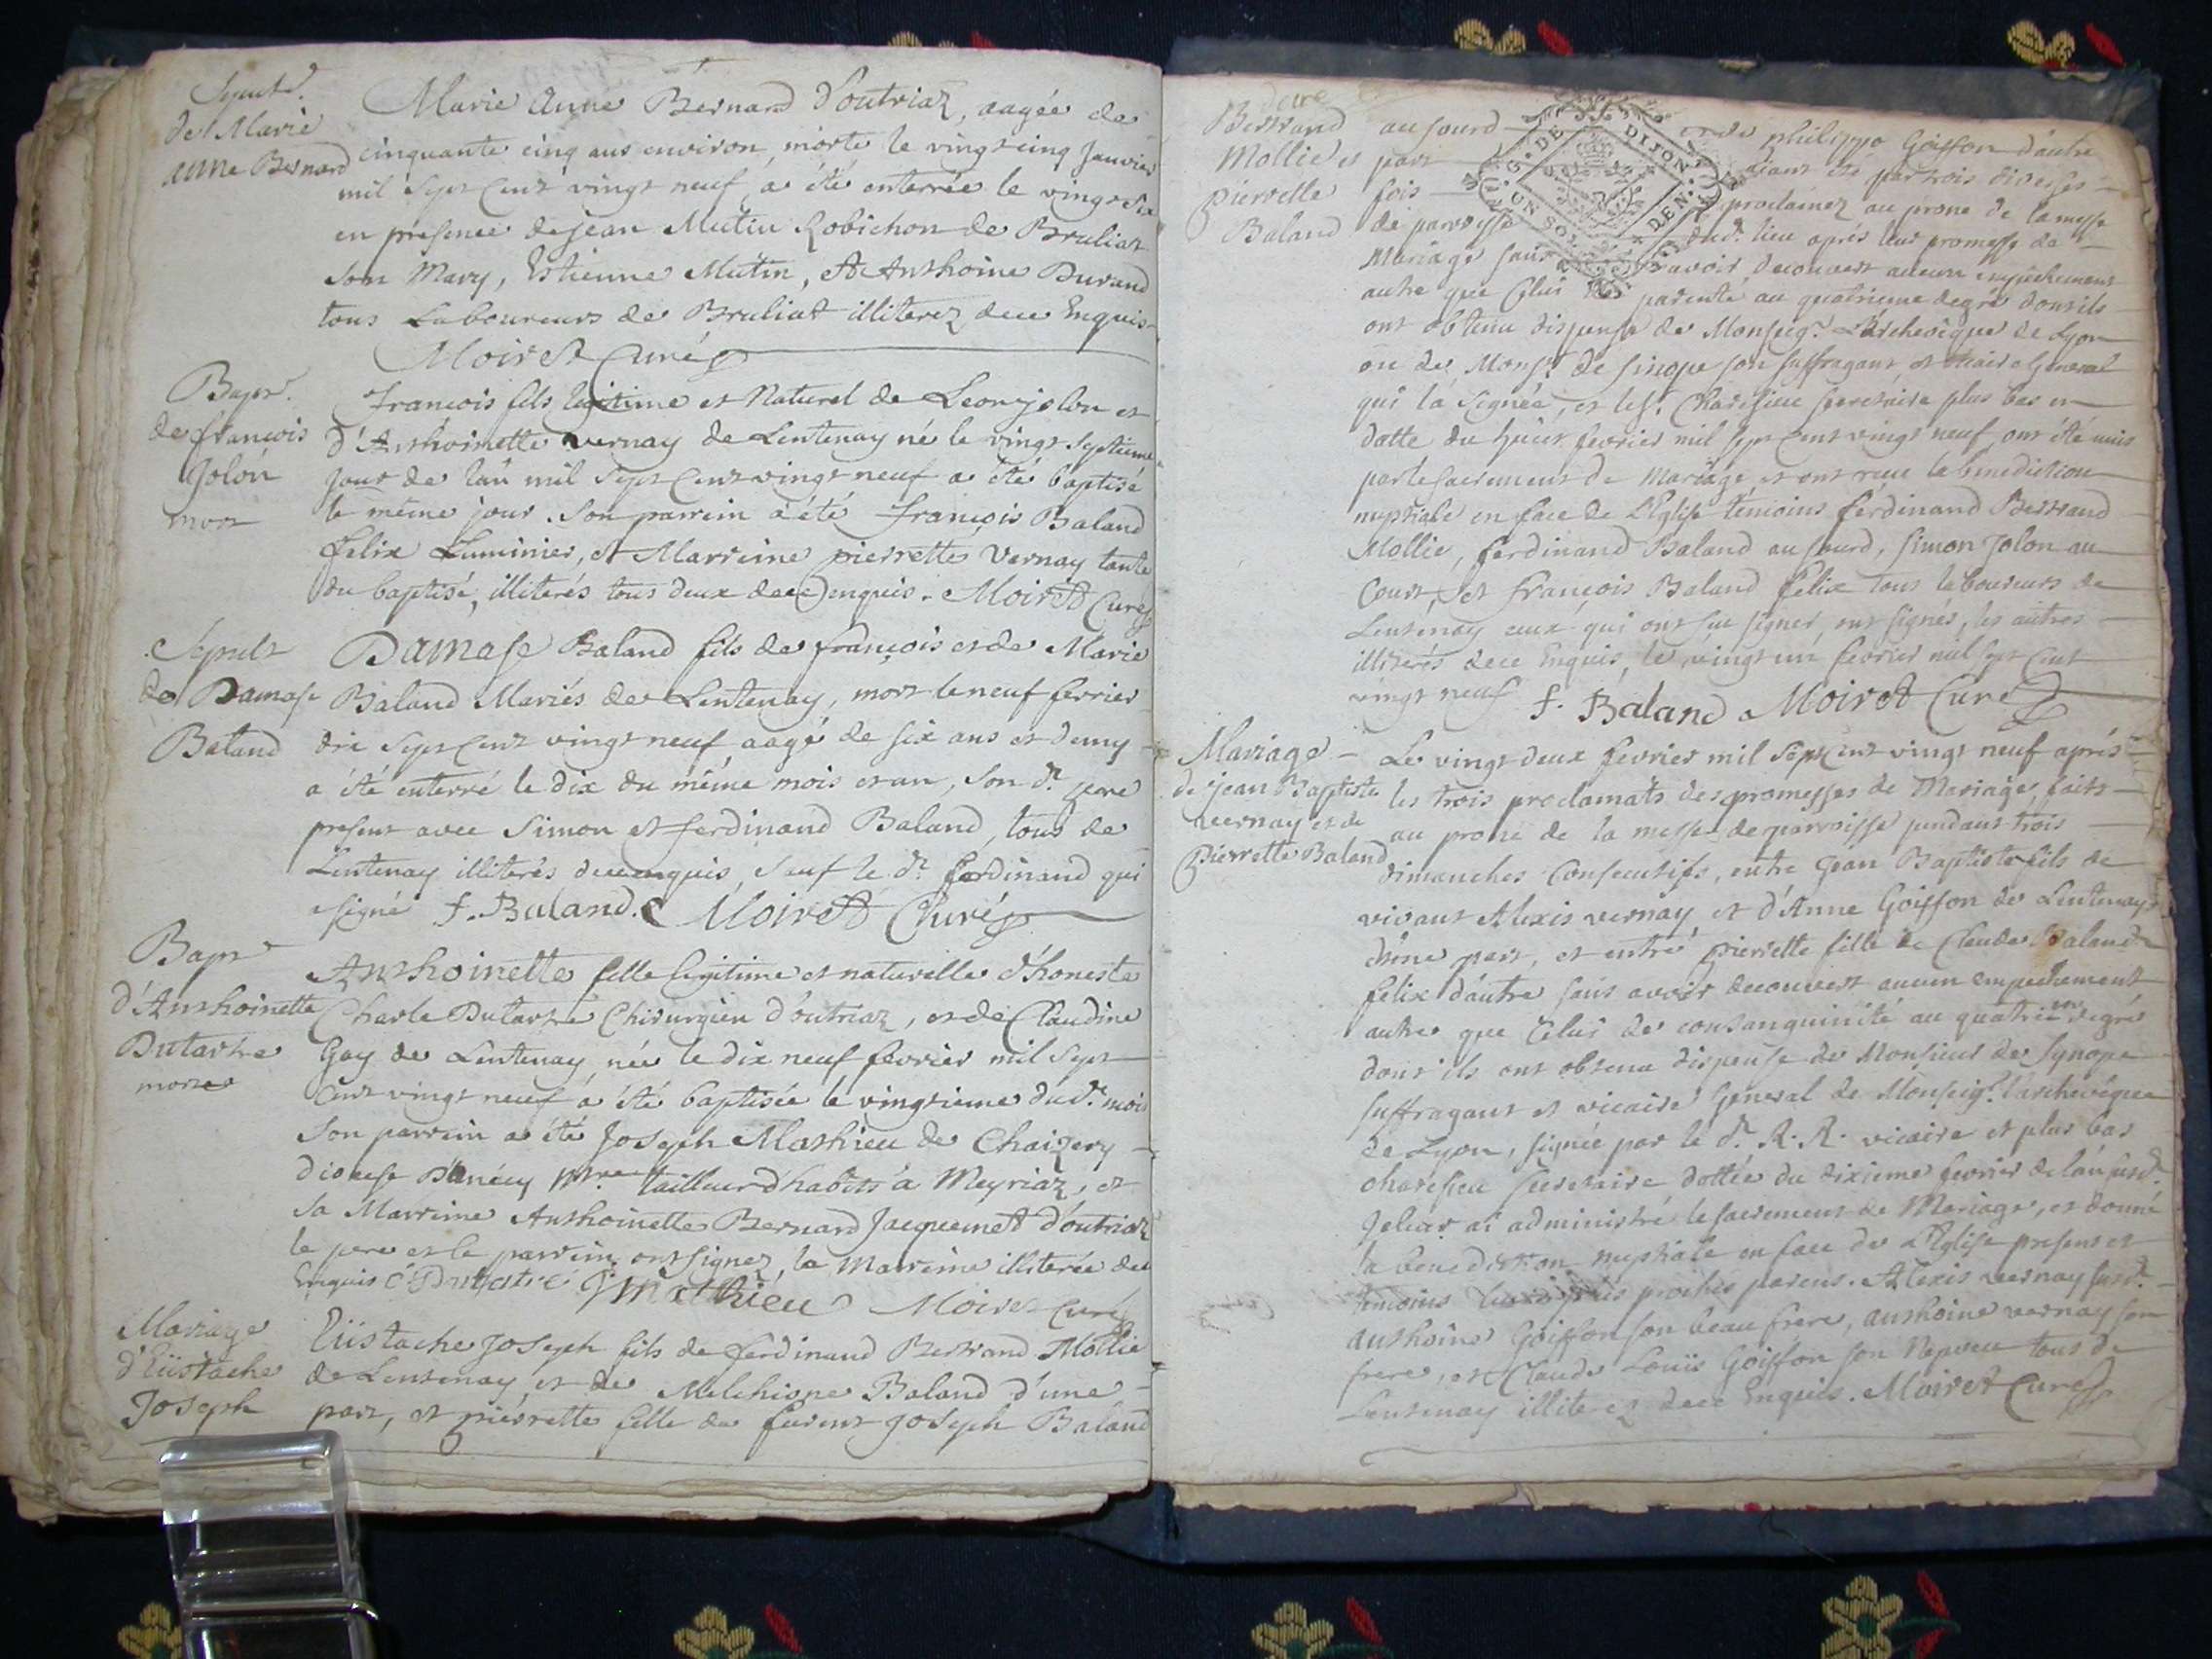 Sepult.
de Marie
anne Bernard
Marie Anne Bernard d'outriaz, aagée de
cinquante cinq ans environ, morte le vingt cinq Janvier
mil sept cent vingt neuf a été enterrée le vingt six
en présence de jean Mutin Robichon de Bruliat
son Mary, Estienne Mutin, et Anthoine Durand
tous Laboureurs de Bruliat illiterez de ce Enquis
Moiret Curé
Bapt.
de françois
Jolon
mort
François fils legitime et Naturel de Leon jolon et
d'Anthoinette vernay de Lentenay né le vingt septieme
jour de l'an mil sept cent vingt neuf a été baptisé
le même jour. Son parrein a été françois Baland
felix Luminier, et Marreine pierrette Vernay tante
du baptisé, illiterés tous deux de ce enquis. Moiret Curé
Sepult
de Damase
Baland
Damase Baland fils de françois et de Marie
Baland Mariés de Lentenay, mort le neuf fevrier
dix sept cent vingt neuf aagé de six ans et demy
a été enterré le dix du même mois et an, son d. pere
present avec Simon et ferdinand Baland, tous de
Lentenay illiterés de ce enquis, sauf le d. ferdinand qui
signé F. Baland. Moiret Curé
Bapt
d'Anthoinette
Dutartre
morte
Anthoinette fille legitime et naturelle d'honeste
Charle Dutartre Chirurgien d'outriaz, et de Claudine
Goy de Lentenay, née le dix neuf fevrier mil sept
cent vingt neuf a été baptisée le vingtieme du d. mois
Son parrein a été Joseph Mathieu de Chaizery
diocese D'anécy M.re tailleur d'habits à Meyriaz, et
sa Marreine Anthoinette Bernard Jacquemet d'outriaz
le pere et le parrein ont signez, la Marreine illiterée de ce
Enquis C. Dutartre J mathieu Moiret Curé
Mariage
d'Eüstache
Joseph
Eüstache Joseph fils de ferdinand Bertrand Mollie
de Lentenay, et de Melchione Baland d'une
part, et pierrette fille de furent Joseph Baland
Bertrand
Mollie et
pierrette
Baland
G. DE DIJON
UN SOL DEN.
au sourd et de philippa Goiffon d'autre
part aiant été par trois diverses
fois proclamez au prone de la messe
de paroisse dud. lieu aprés leur promesse de
Mariage sans avoir decouvert aucun empéchement
autre que Celui de parenté au quatrieme degré dont ils
ont obtenu dispense de Monseig.r L'archevéque de Lyon
ou de Mons.r de Sinope son suffragant et vicaire General
qui l'a signée, et le s. Charesieu secretaire plus bas en
datte du huit fevrier mil sept cent vingt neuf, ont été unis
par le sacrement de Mariage et ont receu la benediction
nuptiale en face de L'Eglise témoins ferdinand Bertrand
Mollie, ferdinand Baland au sourd, simon Jolon au
Court, et françois Baland felix tous laboureurs de
Lentenay ceux qui ont sçu signer, ont signés, les autres
illiterés de ce Enquis, le vingt un fevrier mil sept cent
vingt neuf F. Baland Moiret Curé
Mariage
de jean Baptiste
vernay et de
Pierrette Baland
Le vingt deux fevrier mil sept cent vingt neuf aprés
les trois proclamats des promesses de Mariage faits
au prone de la messe de parroisse pendant trois
dimanches Consecutifs, entre jean Baptiste fils de
vivant Alexis vernay, et d'Anne Goiffon de Lentenay
d'une part, et entre pierrette fille de Claude Baland
felix d'autre sans avoir decouvert aucun empechement
autre que Celui de consanguinité au quatriem degré
dont ils ont obtenu dispense de Monsieur de Synope
suffragant et vicaire General de Monseig.r l'archevéque
de Lyon, signée par le d. R. R. vicaire et plus bas
charesieu secretaire dattée du dixieme fevrier de l'an susd.
Je leur ai administré le sacrement de Mariage, et donné
la benediction nuptiale en face de L'Eglise present et
témoins plus proches parens. Alexis vernay susd.
anthoine Goiffon son beau frere, anthoine vernay son
frere, et Claude Louis Goiffon son Nepveu tous de
Lentenay illiterez de ce Enquis. Moiret Curé